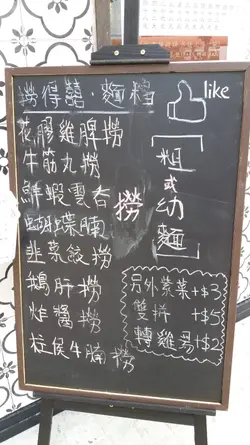 撈得囍·麵檔
like
花膠雞髀撈
牛筋丸撈
鮮蝦雲吞
蝴蝶腩
撈
韭菜餃撈
鵝肝撈
炸醬撈
柱侯牛腩撈
粗或幼麵
另外紫菜+$3
雙拼 +$5
轉雞湯+$2